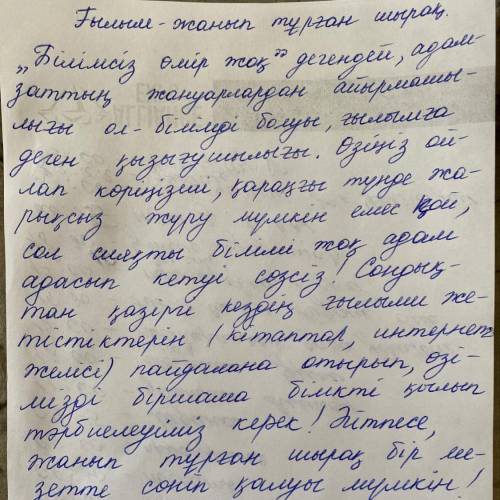 Ғылым - жанып тұрған шырақ.
„Білімсіз өмір жоқ” дегендей, адам-
заттың жануарлардан айырмашы-
лығы ол - білімді болуы, ғылымға
деген қызығушылығы. Өзіңіз ой-
лап көріңізші, қараңғы түнде жа-
рықсыз жүру мүмкін емес қой,
сол сияқты білімі жоқ адам
адасып кетуі сөзсіз! Сондық-
тан қазіргі кездің ғылыми же-
тістіктерін (кітаптар, интернет
желісі) пайдалана отырып, өзі-
мізді біршама білікті қылып
тәрбиелеуіміз керек! Әйтпесе,
жанып тұрған шырақ бір ме-
зетте сөніп қалуы мүмкін!